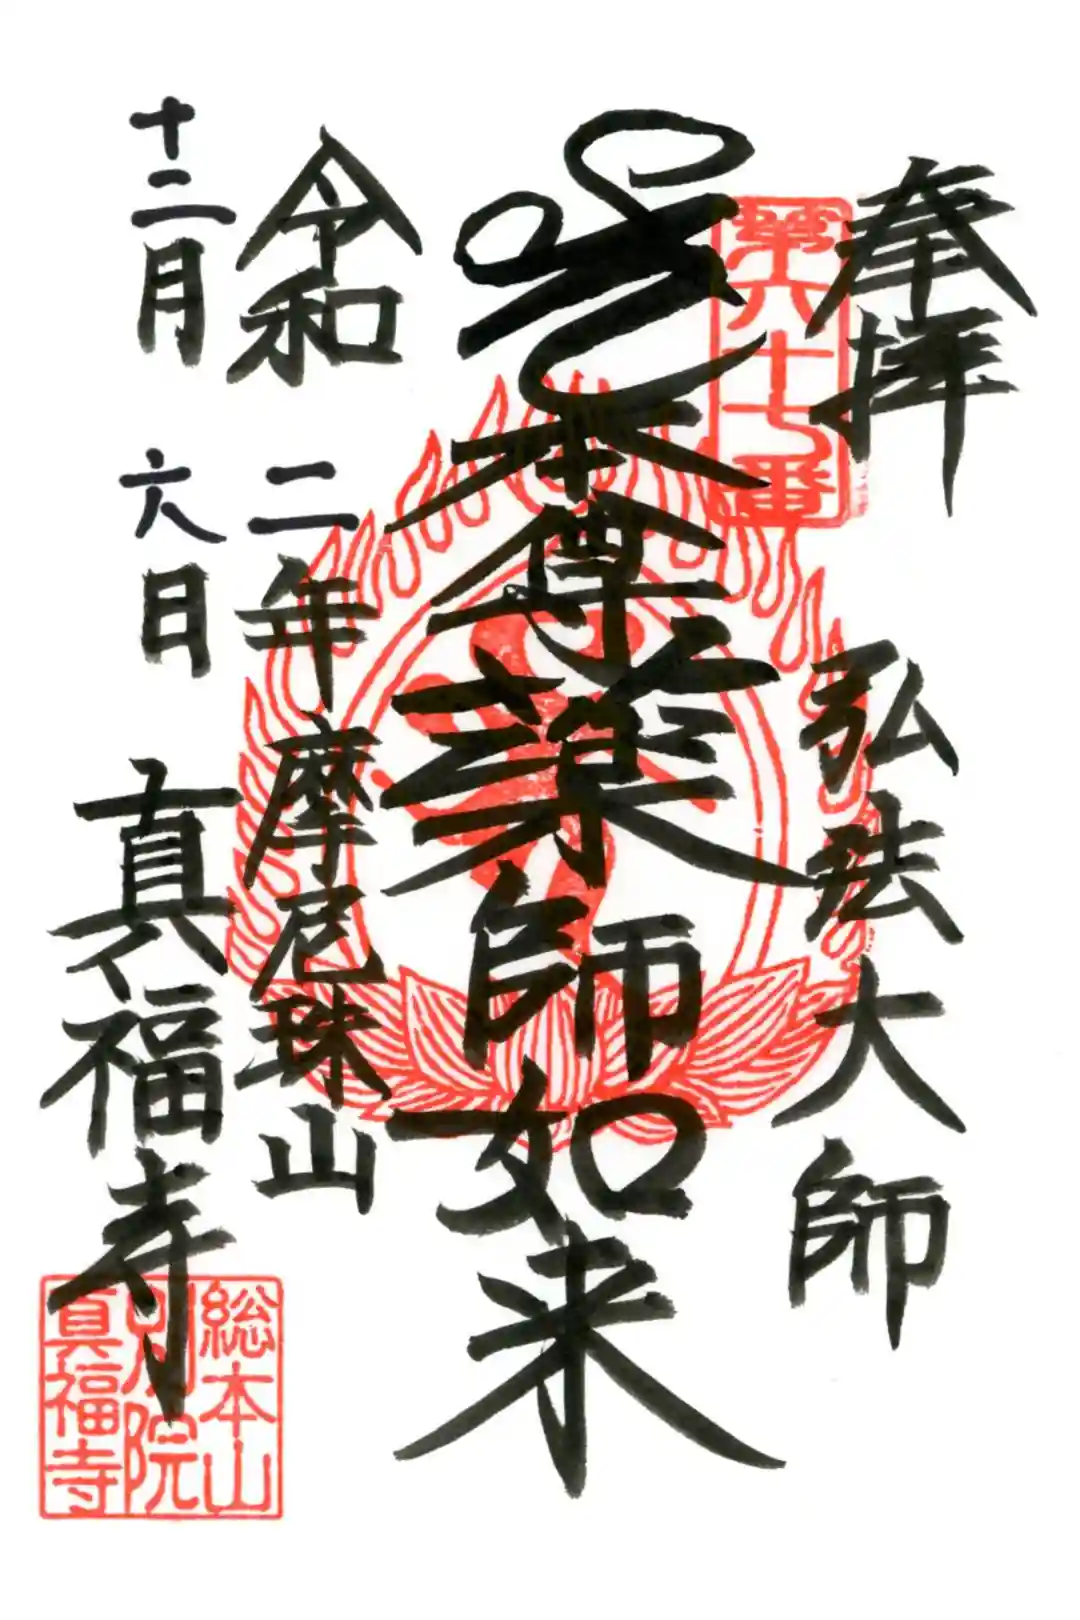 奉拝
弘法大師
第六十七番
本尊薬師如来
令和二年摩尼珠山
十二月六日
真福寺
総本山
別院
真福寺